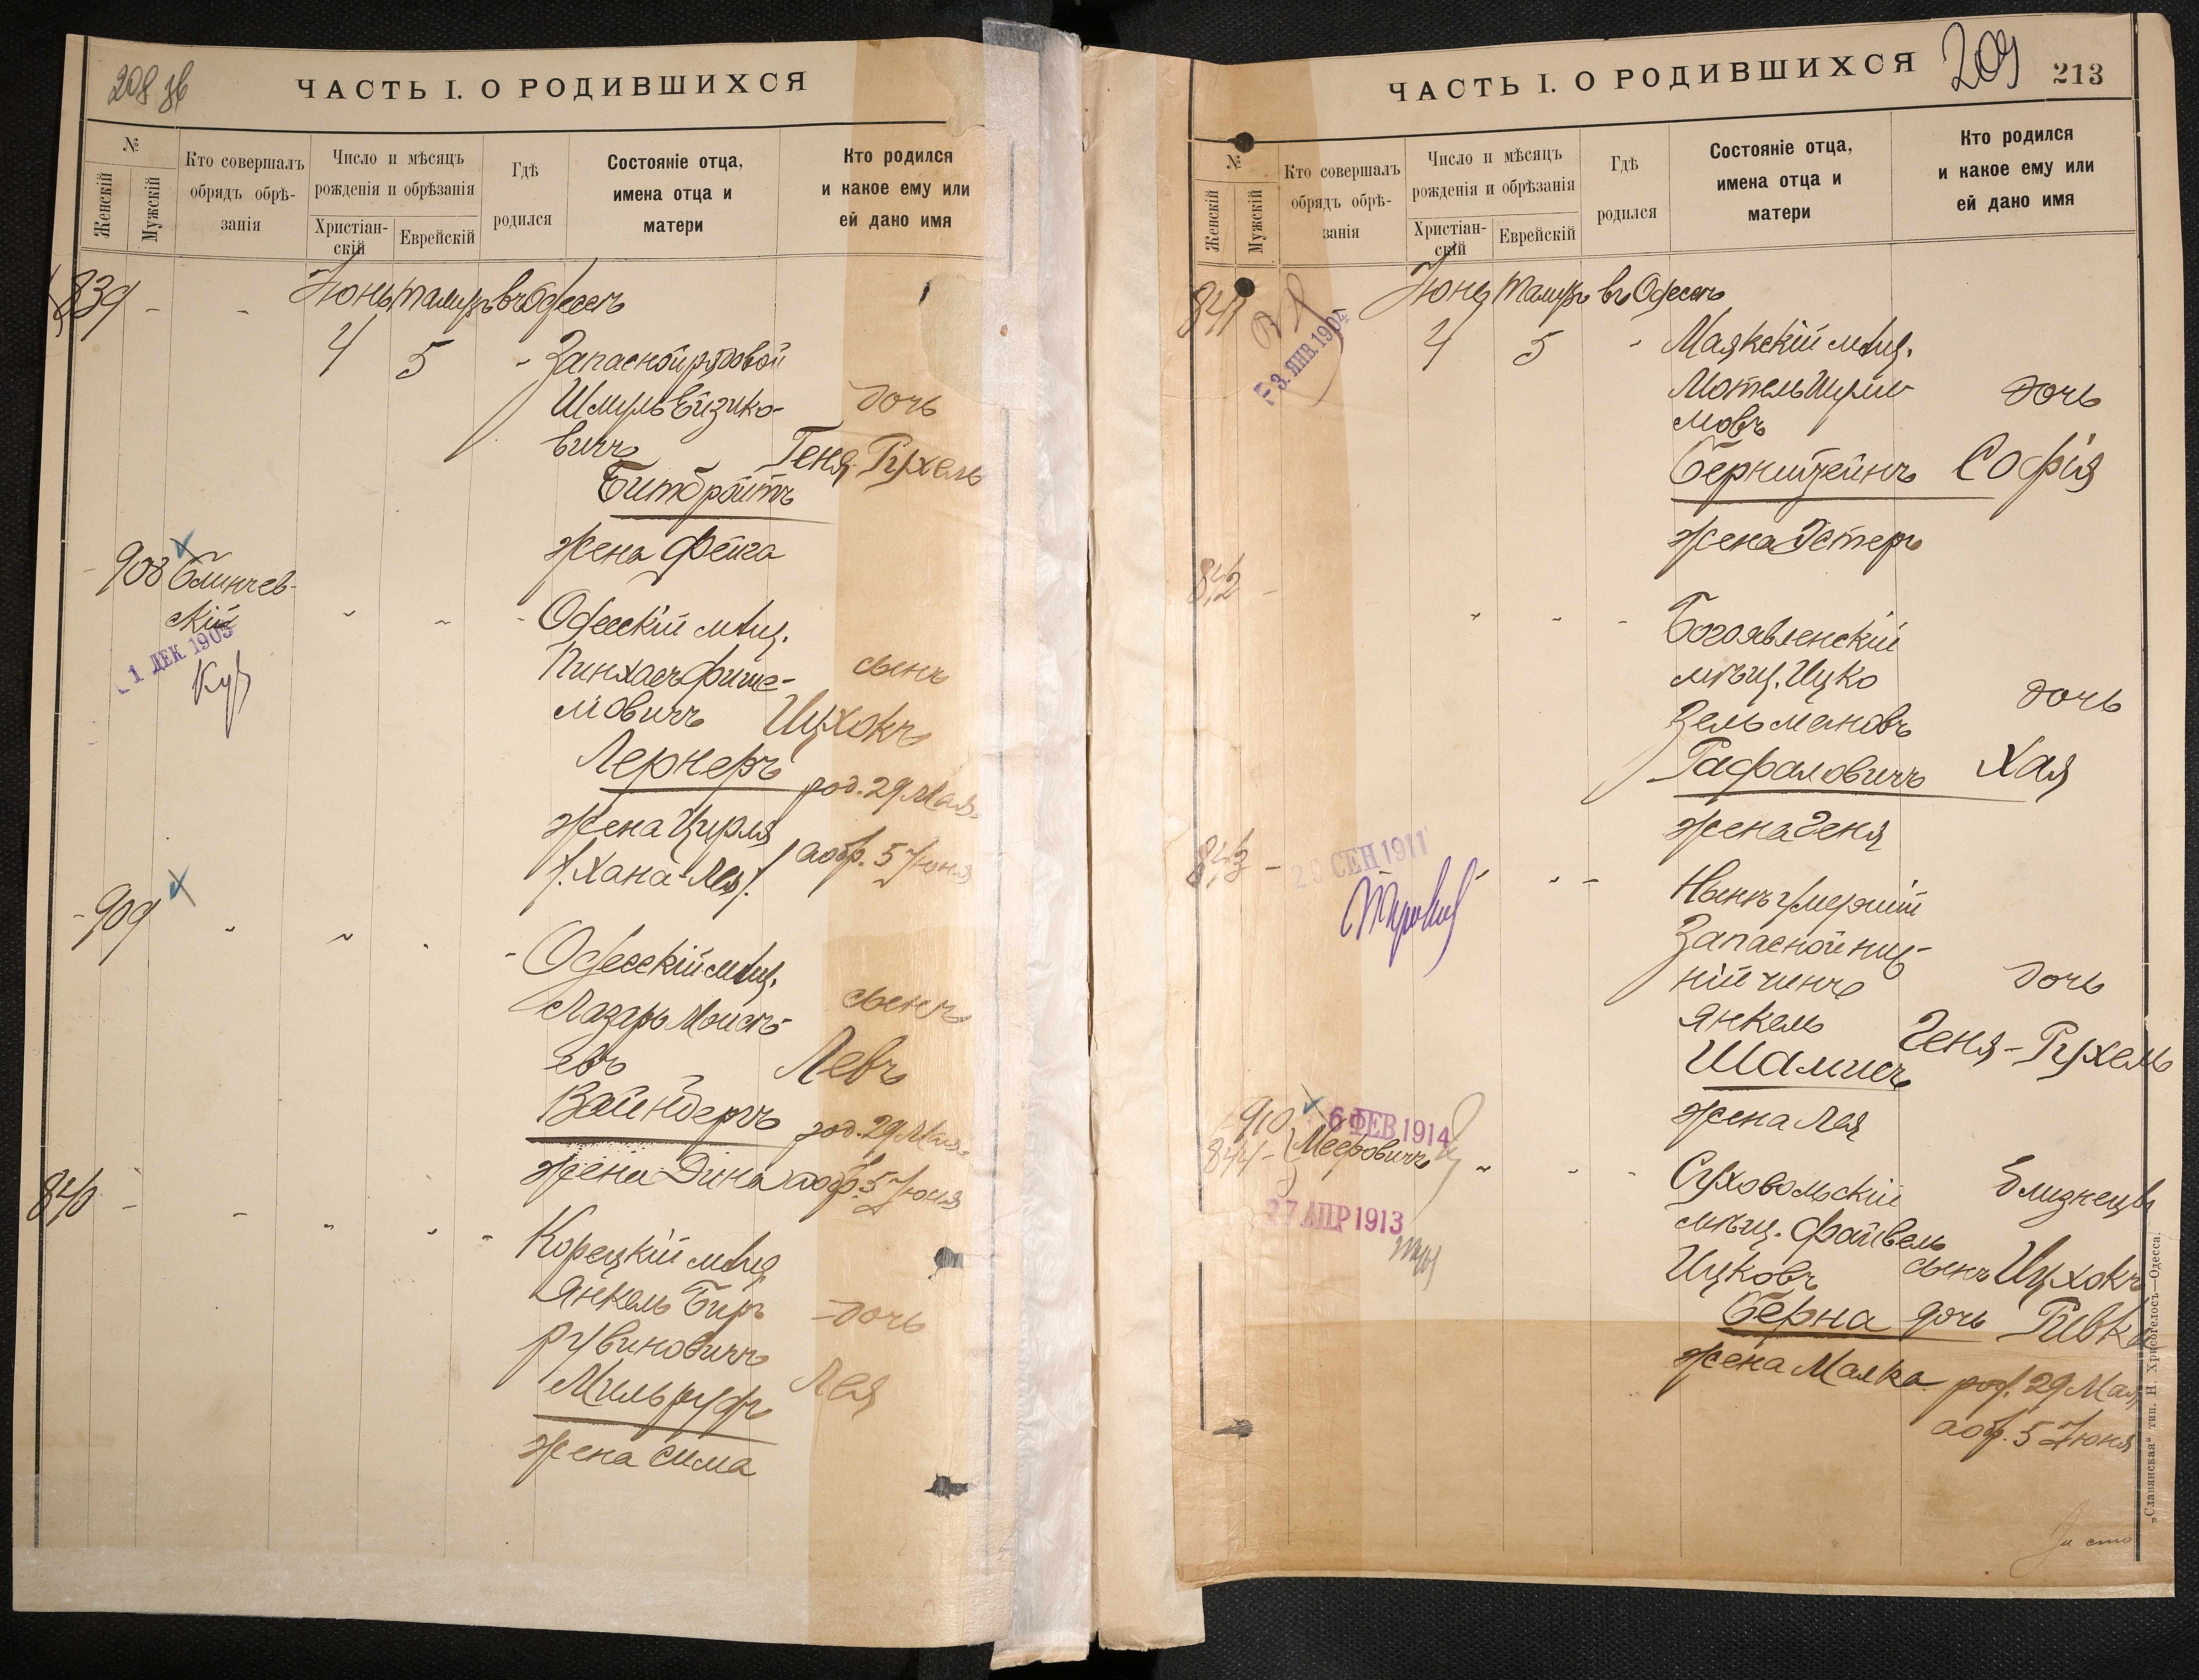 208 зв
ЧАСТЬ I. О РОДИВШИХСЯ
№
Женскій
Мужскій
Кто совершалъ
обрядъ обрѣ-
занія
Число и мѣсяцъ
рожденія и обрѣзанія
Христіан-
скій
Еврейскій
Гдѣ
родился
Состояніе отца,
имена отца и
матери
Кто родился
и какое ему или
ей дано имя
839 - - Іюнь Тамузъ въ Одессѣ
4 5 - Запасной рядовой
Шмуль Ейзико- дочь
вичъ Геня-Рухель
Битбройтъ
жена Фейга
908 Блинчев-
скій
1 ДЕК 1903
Одесскій мѣщ.
Пинхасъ Фише- сынъ
левичъ Ицхокъ
Лернеръ род. 29 Мая
жена Цирля а обр. 5 Іюня
/. Хана-Лея/.
909
Одесскій мѣщ.
Лазарь Моисѣ- сынъ
евъ Левъ
Вайнбергъ род. 29 Мая
жена Дина а обр. 5 Іюня
840 -
Корецкій мѣщ.
Янкель Беръ - дочь
Рувиновичъ
Мильруфъ Лея
жена Сима
ЧАСТЬ I. О РОДИВШИХСЯ
209
213
№
Женскій
Мужскій
Кто совершалъ
обрядъ обрѣ-
занія
Число и мѣсяцъ
рожденія и обрѣзанія
Христіан-
скій
Еврейскій
Гдѣ
родился
Состояніе отца,
имена отца и
матери
Кто родился
и какое ему или
ей дано имя
841 Іюнь Тамузъ въ Одессѣ
3. ЯНВ. 1904
4 5 - Маякскій мѣщ.
Мотель Шлио- дочь
мовъ
Бернштейнъ Софія
жена Эстеръ
842 -
Богоявленскій
мѣщ. Ицко дочь
Зельмановъ
Рафаловичъ Хая
жена Геня
843 -
29 СЕН 1911
Нынѣ умершій
Запасной ниж-
ній чинъ дочь
Янкель Геня-Рухель
Шамисъ
жена Лея
910
844 - Мееровичъ
6 ФЕВ 1914
27 АПР 1913
Суховольскій Близнецы
мѣщ. Файвель
Ицковъ сынъ Ицхокъ
Берна дочь Ривка
жена Малка род. 29 Мая
а обр. 5 Іюня
„Славянская“ тип. Н. Хрисогелосъ—Одесса.